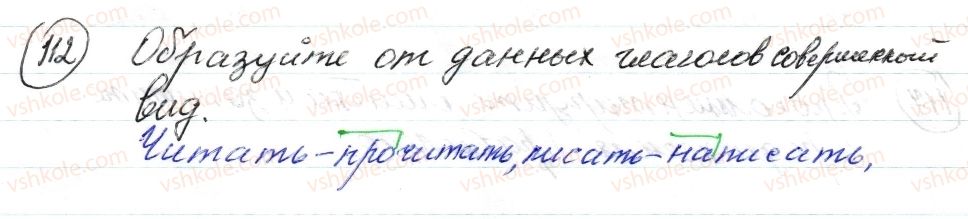 112 Образуйте от данных глаголов совершенный
вид.
Читать-прочитать, писать-написать,